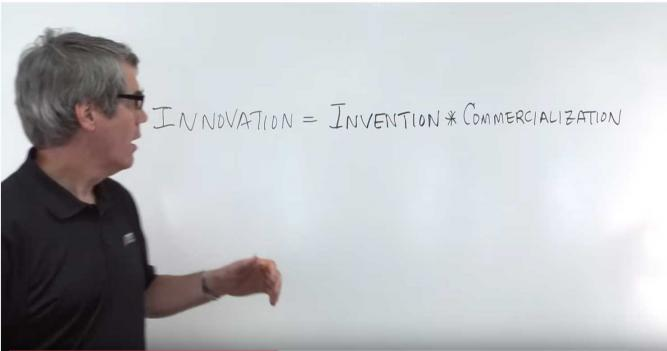 INNOVATION = INVENTION * COMMERCIALIZATION